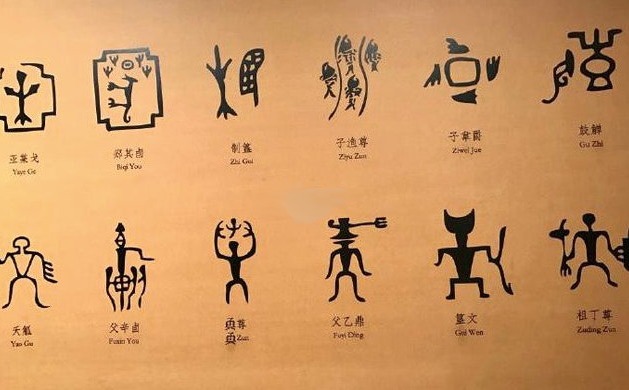 亚𬎆戈
Yaye Ge
邲其卣
Biqi You
制簋
Zhi Gui
子渔尊
Ziyu Zun
子韋爵
Ziwei Jue
鼓觯
Gu Zhi
夭觚
Yao Gu
父辛卣
Fuxin You
尊
Zun
父乙鼎
Fuyi Ding
簋文
Gui Wen
祖丁尊
Zuding Zun